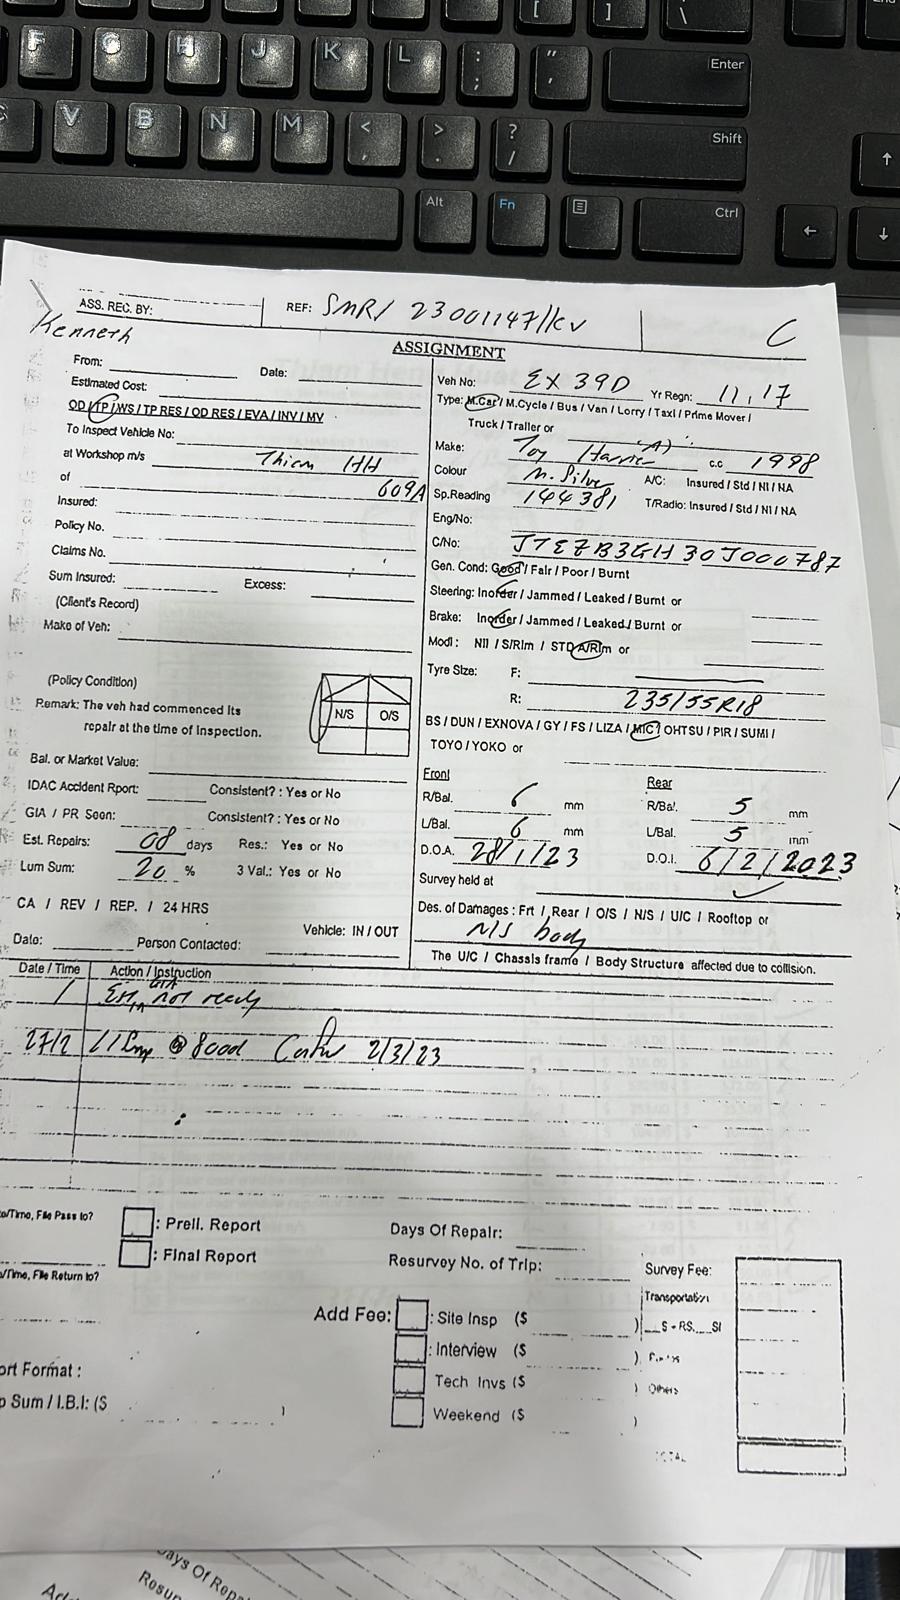 F G H J K L : ; " ' Enter
[ ] \
V B N M < , > . ? / Shift
Alt Fn Ctrl
ASS. REC. BY: REF: SMR/ 23001147//KV C
Kenneth
ASSIGNMENT
From: Date:
Estimated Cost:
OD / TP / WS / TP RES / OD RES / EVA / INV / MV
To Inspect Vehicle No:
at Workshop m/s Thiam HH
of 609A
Insured:
Policy No.
Claims No.
Sum Insured: Excess:
(Client's Record)
Make of Veh:
(Policy Condition)
Remark: The veh had commenced its
repair at the time of inspection.
N/S O/S
Bal. or Market Value:
IDAC Accident Rport: Consistent? : Yes or No
GIA / PR Seen: Consistent? : Yes or No
Est. Repairs: 08 days Res.: Yes or No
Lum Sum: 20 % 3 Val.: Yes or No
CA / REV / REP. / 24 HRS
Vehicle: IN / OUT
Date: Person Contacted:
Veh No: EX 39D Yr Regn: 11, 17
Type: M.Car / M.Cycle / Bus / Van / Lorry / Taxi / Prime Mover /
Truck / Trailer or
Make: Toy Harrier (A) c.c 1998
Colour M. Silver A/C: Insured / Std / NI / NA
Sp.Reading 144381 T/Radio: Insured / Std / NI / NA
Eng/No:
C/No: JTEZB3GH30J000787
Gen. Cond: Good / Fair / Poor / Burnt
Steering: Inorder / Jammed / Leaked / Burnt or
Brake: Inorder / Jammed / Leaked / Burnt or
Modi: Nil / S/Rim / STD A/Rim or
Tyre Size: F:
R: 235/55R18
BS / DUN / EXNOVA / GY / FS / LIZA / MIC / OHTSU / PIR / SUMI /
TOYO / YOKO or
Front Rear
R/Bal. 6 mm R/Bal. 5 mm
L/Bal. 6 mm L/Bal. 5 mm
D.O.A. 28/1/23 D.O.I. 6/2/2023
Survey held at
Des. of Damages : Frt / Rear / O/S / N/S / U/C / Rooftop or
N/S body
The U/C / Chassis frame / Body Structure affected due to collision.
Date / Time Action / Instruction
GIA not ready
27/2 @ 8000 2/3/23
: Prell. Report
: Final Report
Days Of Repair:
Resurvey No. of Trip:
Survey Fee:
Transportation
Add Fee: : Site Insp ($ )
: Interview ($ )
Tech Invs ($ ) Others
Weekend ($ )
TOTAL
/Time, File Pass to?
/Time, File Return to?
ort Format :
p Sum / I.B.I: ($ )
ays Of Repa
Resur